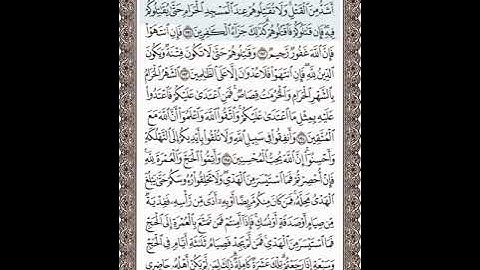 أَشَدُّ مِنَ ٱلْقَتْلِ وَلَا تُقَٰتِلُوهُمْ عِندَ ٱلْمَسْجِدِ ٱلْحَرَامِ حَتَّىٰ يُقَٰتِلُوكُمْ
فِيهِ فَإِن قَٰتَلُوكُمْ فَٱقْتُلُوهُمْ كَذَٰلِكَ جَزَآءُ ٱلْكَٰفِرِينَ ۝ فَإِنِ ٱنتَهَوْا۟
فَإِنَّ ٱللَّهَ غَفُورٌ رَّحِيمٌ ۝ وَقَٰتِلُوهُمْ حَتَّىٰ لَا تَكُونَ فِتْنَةٌ وَيَكُونَ
ٱلدِّينُ لِلَّهِ فَإِنِ ٱنتَهَوْا۟ فَلَا عُدْوَٰنَ إِلَّا عَلَى ٱلظَّٰلِمِينَ ۝ ٱلشَّهْرُ ٱلْحَرَامُ
بِٱلشَّهْرِ ٱلْحَرَامِ وَٱلْحُرُمَٰتُ قِصَاصٌ فَمَنِ ٱعْتَدَىٰ عَلَيْكُمْ فَٱعْتَدُوا۟
عَلَيْهِ بِمِثْلِ مَا ٱعْتَدَىٰ عَلَيْكُمْ وَٱتَّقُوا۟ ٱللَّهَ وَٱعْلَمُوٓا۟ أَنَّ ٱللَّهَ مَعَ
ٱلْمُتَّقِينَ ۝ وَأَنفِقُوا۟ فِى سَبِيلِ ٱللَّهِ وَلَا تُلْقُوا۟ بِأَيْدِيكُمْ إِلَى ٱلتَّهْلُكَةِ
وَأَحْسِنُوٓا۟ إِنَّ ٱللَّهَ يُحِبُّ ٱلْمُحْسِنِينَ ۝ وَأَتِمُّوا۟ ٱلْحَجَّ وَٱلْعُمْرَةَ لِلَّهِ
فَإِنْ أُحْصِرْتُمْ فَمَا ٱسْتَيْسَرَ مِنَ ٱلْهَدْىِ وَلَا تَحْلِقُوا۟ رُءُوسَكُمْ حَتَّىٰ يَبْلُغَ
ٱلْهَدْىُ مَحِلَّهُۥ فَمَن كَانَ مِنكُم مَّرِيضًا أَوْ بِهِۦٓ أَذًى مِّن رَّأْسِهِۦ فَفِدْيَةٌ
مِّن صِيَامٍ أَوْ صَدَقَةٍ أَوْ نُسُكٍ فَإِذَآ أَمِنتُمْ فَمَن تَمَتَّعَ بِٱلْعُمْرَةِ إِلَى ٱلْحَجِّ
فَمَا ٱسْتَيْسَرَ مِنَ ٱلْهَدْىِ فَمَن لَّمْ يَجِدْ فَصِيَامُ ثَلَٰثَةِ أَيَّامٍ فِى ٱلْحَجِّ
وَسَبْعَةٍ إِذَا رَجَعْتُمْ تِلْكَ عَشَرَةٌ كَامِلَةٌ ذَٰلِكَ لِمَن لَّمْ يَكُنْ أَهْلُهُۥ حَاضِرِى